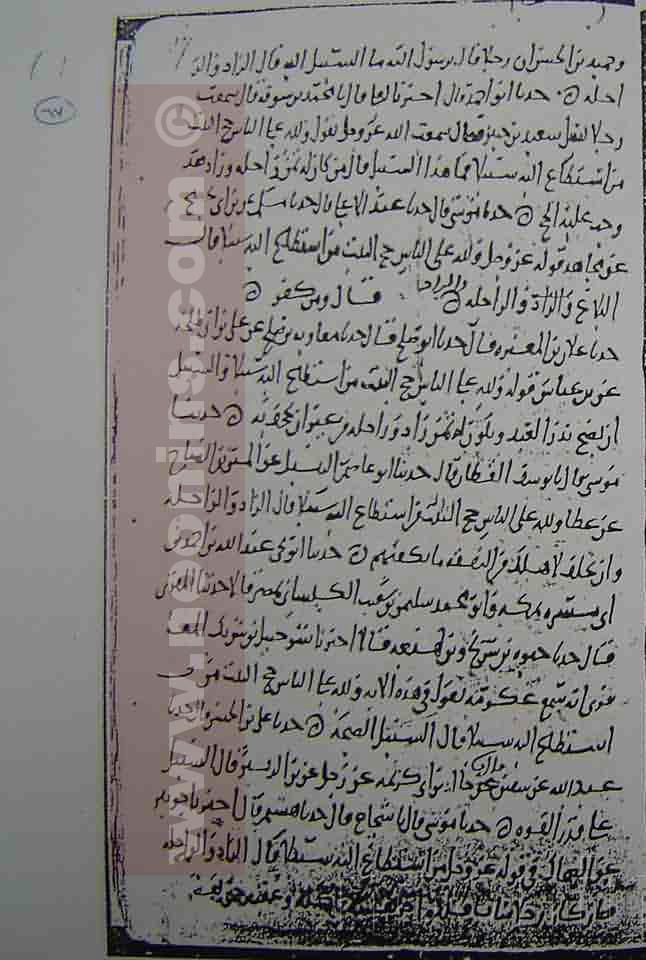 وحميد عن الحسن ان رجلا قال يرسول الله ما السبيل اليه قال الزاد والر
احله حدثنا ابو احمد قال اخبرنا يعلا قال نا محمد بن سوقة قال سمعت
رجلا لسعيد بن جبير سمعت الله عز وجل يقول ولله على الناس حج البيت
من استطاع اليه سبيلا فما هذا السبيل قال من كان له ثمن راحله وزاد فقد
وجب عليه الحج حدثنا موسى قال حدثنا عبد الاعلا قال حدثنا مسلم عن ابن ابي نجيح
عن مجاهد قوله عز وجل ولله على الناس حج البيت من استطاع اليه سبيلا قال
البلاغ والزاد والراحله قال ومن كفر
حدثنا علان بن المغيره قال حدثنا ابو صالح قال حدثنا معاويه بن صالح عن علي بن ابي طلحة
عن ابن عباس قوله ولله على الناس حج البيت من استطاع اليه سبيلا والسبيل
ان يصح بدن العبد ويكون له ثمن زاد وراحله من غير ان يجحف به حدثنا
موسى قال نا يوسف القطان قال حدثنا ابو عاصم عن المثنى بن الصباح
عن عطا ولله على الناس حج البيت من استطاع اليه سبيلا قال الزاد والراحله
وان يخلف لاهله من النفقه ما يكفيهم حدثنا ابو يحيى عبد الله بن احمد بن
ابي مسره بمكه وابو محمد سليمن بن شعيب الكيساني بمصر قالا حدثنا المقرئ
قال حدثنا حيوه بن شريح وابن لهيعه قالا اخبرنا شرحبيل بن شريك المعا
فرى انه سمع عكرمه يقول في هذه الايه ولله على الناس حج البيت من
استطاع اليه سبيلا قال السبيل الصحه حدثنا علي بن الحسن قال حدثنا
عبد الله عن سفين عن خالد بن ابي كريمه عن رجل عن ابن الزبير قال السبيل
على قدر القوه حدثنا موسى قال نا شجاع قال حدثنا هشيم قال اخبرنا جويبر
عن الضحاك في قوله عز وجل من استطاع اليه سبيلا قال الزاد والراحله
www.neonins.com ©